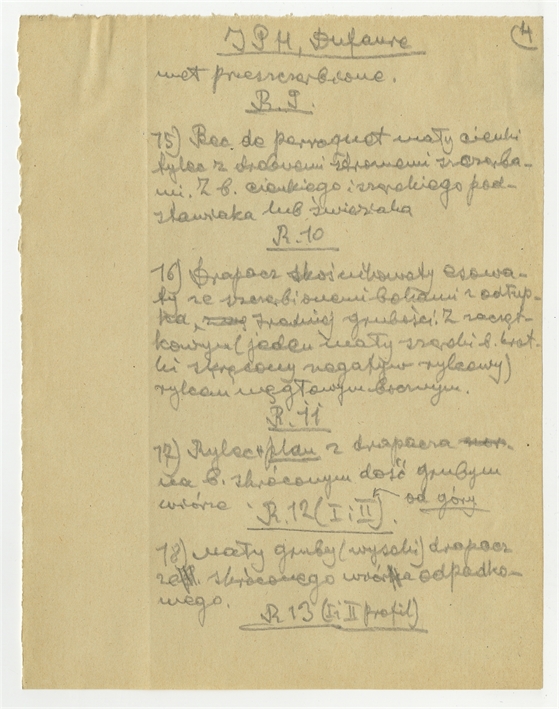 IPH, Dufaure 4
met przeszczerbione.
R. 9.
15) Bec. de perroquet mały cienki
tylec z drobnemi stromemi szczerba-
mi. Z b. cienkiego i szerokiego pod-
stawiaka lub świeciaka
R. 10
16) Drapacz skośnikowaty esowa-
ty ze szczerbionemi bokami z odłup-
ka, średniej grubości. Z zacząt-
kowym (jeden mały szeroki b. krot-
ki skręcony negatyw rylcowy)
rylcem węgłowym bocznym.
R. 11
17) Rylec plan z drapacza
na b. skróconym dość grubym
wiórze od góry
R. 12 (I i II).
18) Mały gruby (wysoki) drapacz
ze skróconego wióra odpadko-
wego.
R 13 (I i II profil)